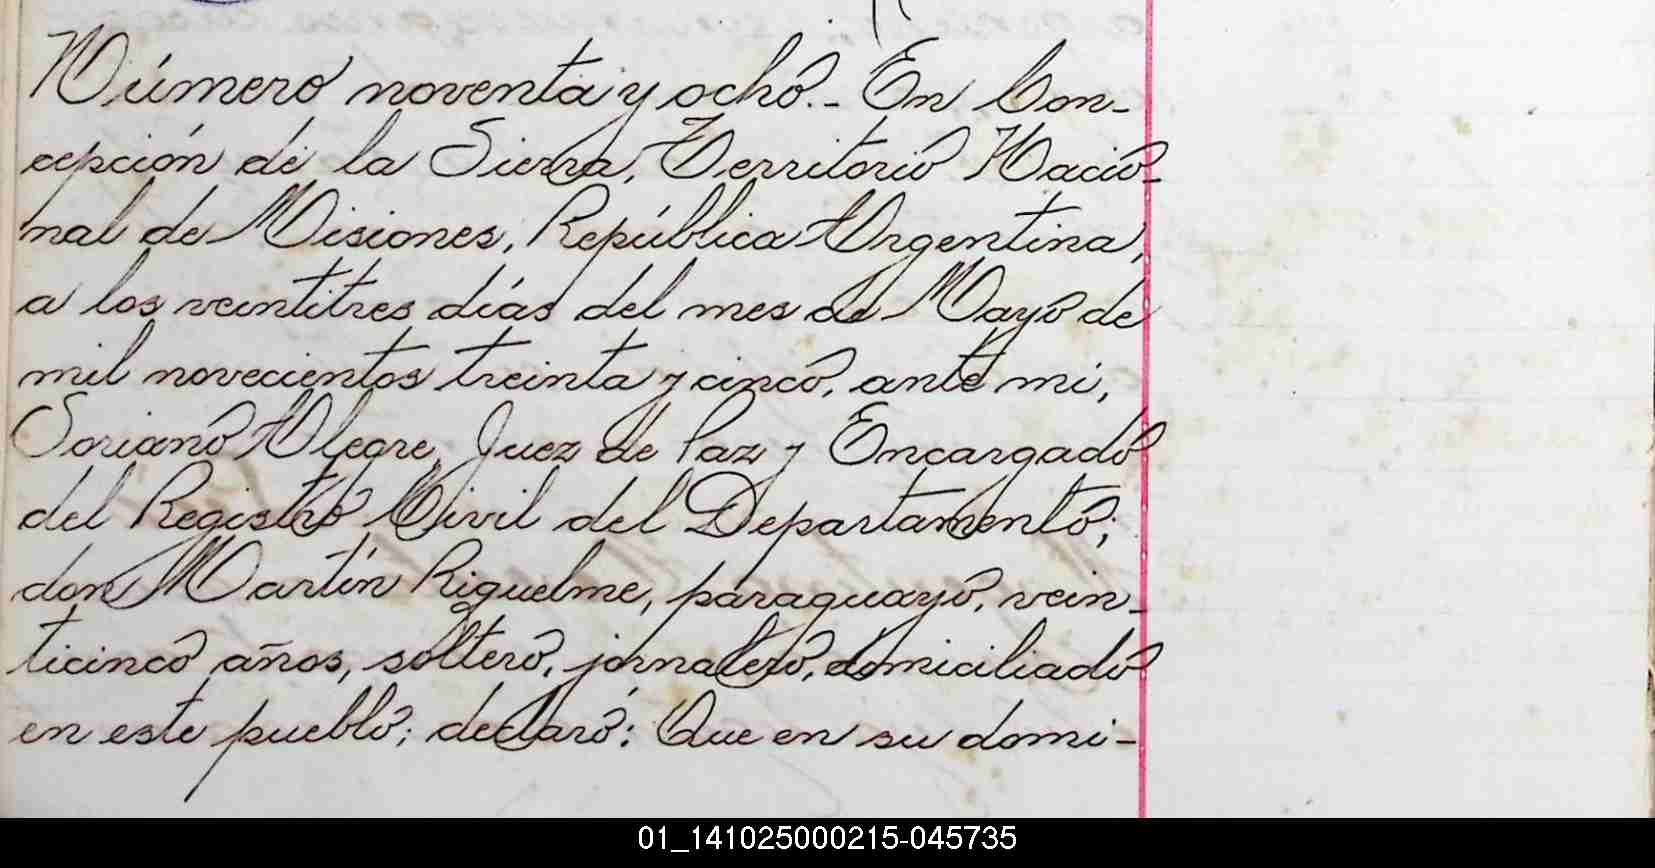 Número noventa y ocho.- En Con-
cepción de la Sierra, Territorio Nacio-
nal de Misiones, República Argentina,
a los veintitres días del mes de Mayo de
mil novecientos treinta y cinco, ante mi,
Soriano Alegre, Juez de Paz y Encargado
del Registro Civil del Departamento;
don Martín Riquelme, paraguayo, vein-
ticinco años, soltero, jornalero, domiciliado
en este pueblo; declaró: Que en su domi-
01_141025000215-045735